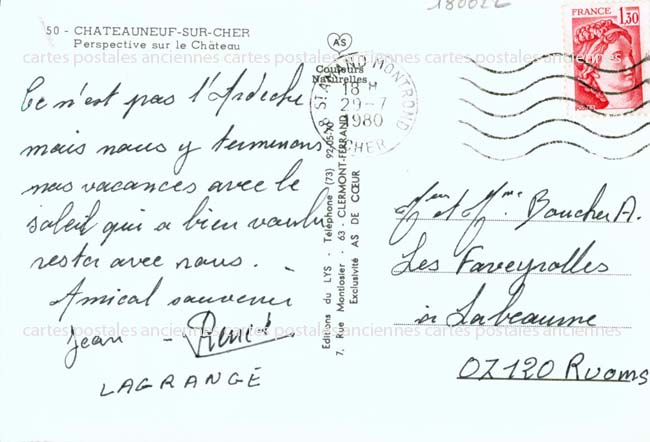 180022
50 - CHATEAUNEUF-SUR-CHER
Perspective sur le Château
Ce n'est pas l'Ardèche
mais nous y terminons
nos vacances avec le
soleil qui a bien voulu
rester avec nous.
Amical souvenir
Jean - René
LAGRANGE
AS
Couleurs
Naturelles
Editions du LYS - Téléphone (73) 92-05-70
7, Rue Montlosier - 63 - CLERMONT-FERRAND
Exclusivité AS DE CŒUR
18 ST AMAND MONTROND
18 H
29-7
1980
CHER
FRANCE
1,30
Mr et Mme Boucher A.
Les Faveyrolles
à Labeaume
07120 Ruoms
cartes postales anciennes cartes postales anciennes cartes postales anciennes
cartes postales anciennes cartes postales anciennes cartes postales anciennes